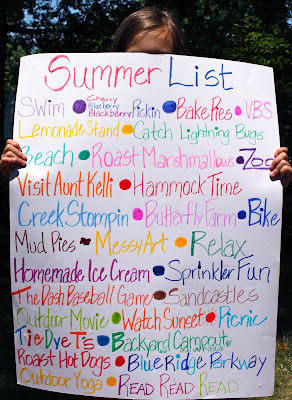 Summer List
Swim • Cherry Blueberry Blackberry Pickin • Bake Pies • VBS
Lemonade Stand • Catch Lightning Bugs
Beach • Roast Marshmallows • Zoo
Visit Aunt Kelli • Hammock Time
Creek Stompin • Butterfly Farm • Bike
Mud Pies • Messy Art • Relax
Homemade Ice Cream • Sprinkler Fun
The Dash Baseball Game • Sandcastles
Outdoor Movie • Watch Sunset • Picnic
Tie Dye Ts • Backyard Campout
Roast Hot Dogs • Blue Ridge Parkway
Outdoor Yoga • Read Read Read